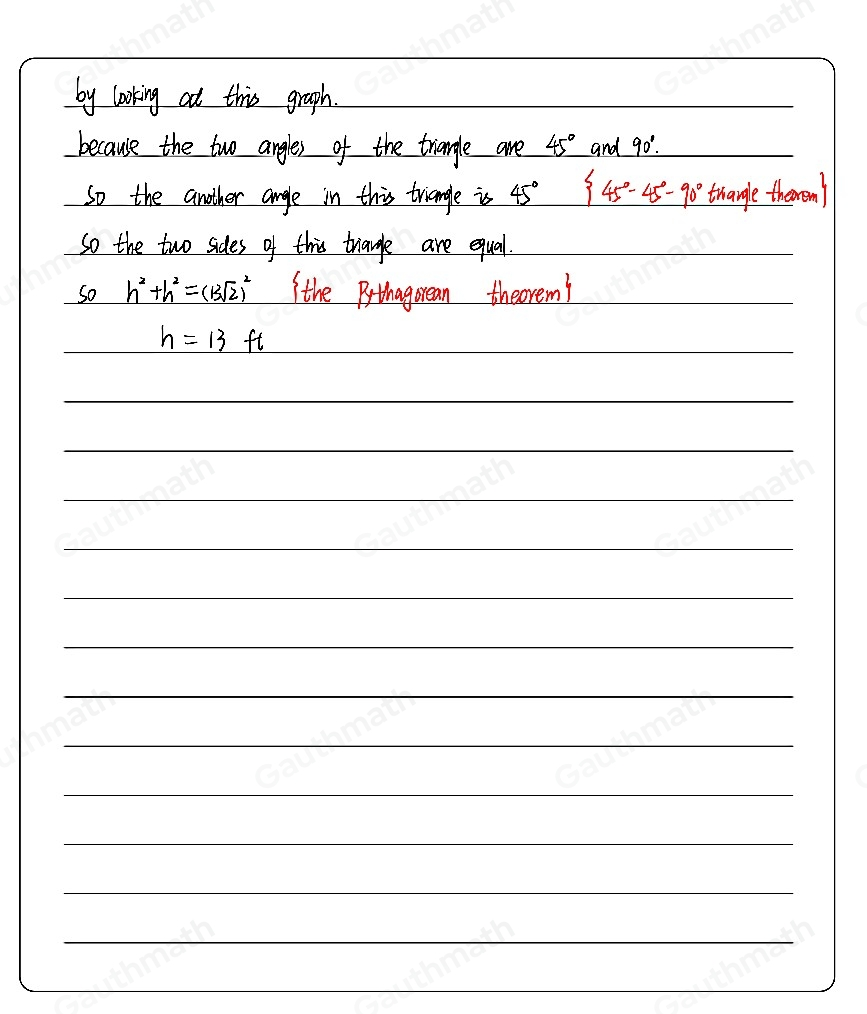 by looking at this graph.
because the two angles of the triangle are 45° and 90°.
so the another angle in this triangle is 45° {45°-45°-90° triangle theorem}
so the two sides of this triangle are equal.
so h²+h²=(13√2)² {the Pythagorean theorem}
h = 13 ft
Gauthmath